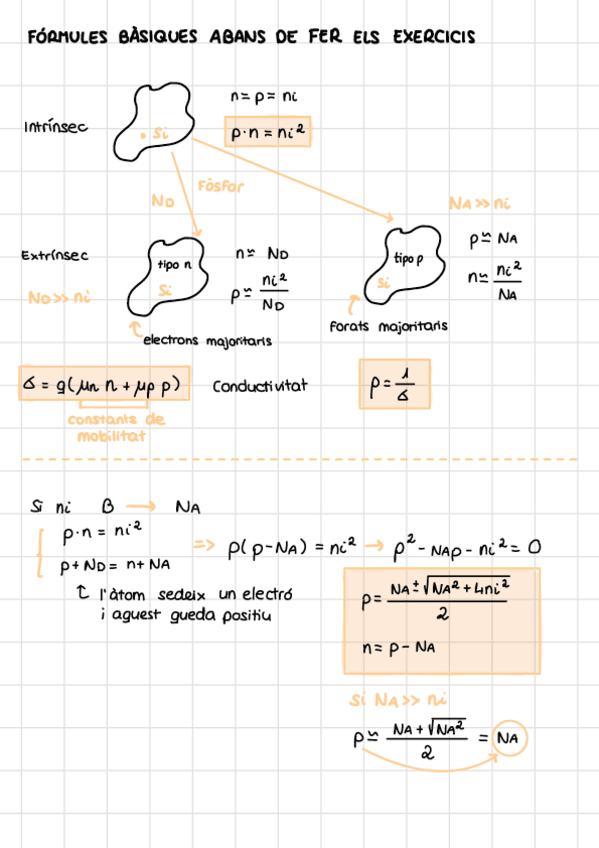 FÓRMULES BÀSIQUES ABANS DE FER ELS EXERCICIS
Intrínsec
Si
n = p = ni
p·n = ni²
ND
Fòsfar
NA >> ni
Extrínsec
ND >> ni
tipo n
Si
n ≃ ND
p ≃ ni² / ND
electrons majoritaris
tipo p
Si
p ≃ NA
n ≃ ni² / NA
Forats majoritaris
σ = q(μn n + μp p)
Conductivitat
ρ = 1 / σ
constants de
mobilitat
Si ni B → NA
p·n = ni²
p + ND = n + NA
=> p(p - NA) = ni² → p² - NAp - ni² = 0
l'àtom sedeix un electró
i aquest queda positiu
p = NA ± √NA² + 4ni² / 2
n = p - NA
Si NA >> ni
p ≃ NA + √NA² / 2 = NA